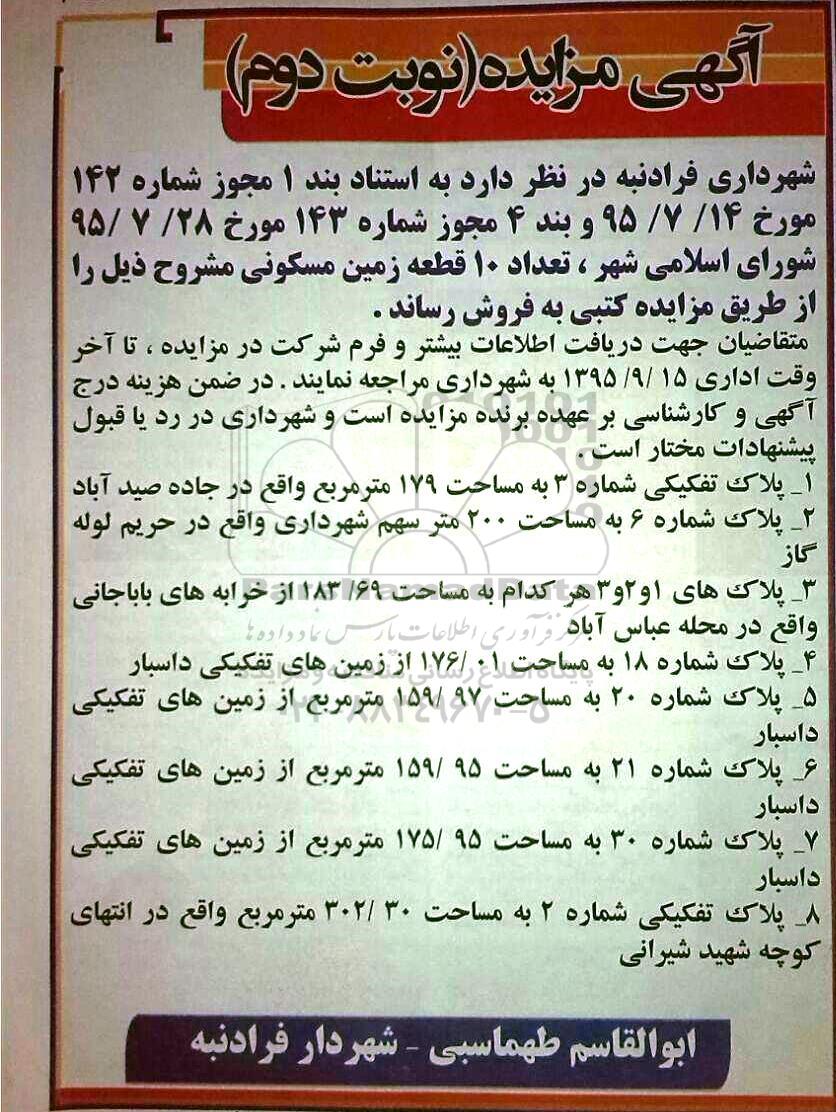 آگهی مزایده(نوبت دوم)
شهرداری فرادنبه در نظر دارد به استناد بند ۱ مجوز شماره ۱۴۲
مورخ ۱۴/ ۷/ ۹۵ و بند ۴ مجوز شماره ۱۴۳ مورخ ۲۸/ ۷ /۹۵
شورای اسلامی شهر ، تعداد ۱۰ قطعه زمین مسکونی مشروح ذیل را
از طریق مزایده کتبی به فروش رساند .
متقاضیان جهت دریافت اطلاعات بیشتر و فرم شرکت در مزایده ، تا آخر
وقت اداری ۱۵ /۹/ ۱۳۹۵ به شهرداری مراجعه نمایند . در ضمن هزینه درج
آگهی و کارشناسی بر عهده برنده مزایده است و شهرداری در رد یا قبول
پیشنهادات مختار است .
۱_ پلاک تفکیکی شماره ۳ به مساحت ۱۷۹ مترمربع واقع در جاده صید آباد
۲_ پلاک شماره ۶ به مساحت ۲۰۰ متر سهم شهرداری واقع در حریم لوله
گاز
۳_ پلاک های ۱و۲و۳ هر کدام به مساحت ۱۸۳/۶۹ از خرابه های باباجانی
واقع در محله عباس آباد
۴_ پلاک شماره ۱۸ به مساحت ۱۷۶/۰۱ از زمین های تفکیکی داسبار
۵_ پلاک شماره ۲۰ به مساحت ۹۷ /۱۵۹ مترمربع از زمین های تفکیکی
داسبار
۶_ پلاک شماره ۲۱ به مساحت ۹۵ /۱۵۹ مترمربع از زمین های تفکیکی
داسبار
۷_ پلاک شماره ۳۰ به مساحت ۹۵ /۱۷۵ مترمربع از زمین های تفکیکی
داسبار
۸_ پلاک تفکیکی شماره ۲ به مساحت ۳۰ /۳۰۲ مترمربع واقع در انتهای
کوچه شهید شیرانی
ابوالقاسم طهماسبی - شهردار فرادنبه
ParsNamadData
مرکز فرآوری اطلاعات پارس نماد داده ها
پایگاه اطلاع رسانی مناقصه و مزایده
۰۲۱-۸۸۳۴۹۶۷۰-۵